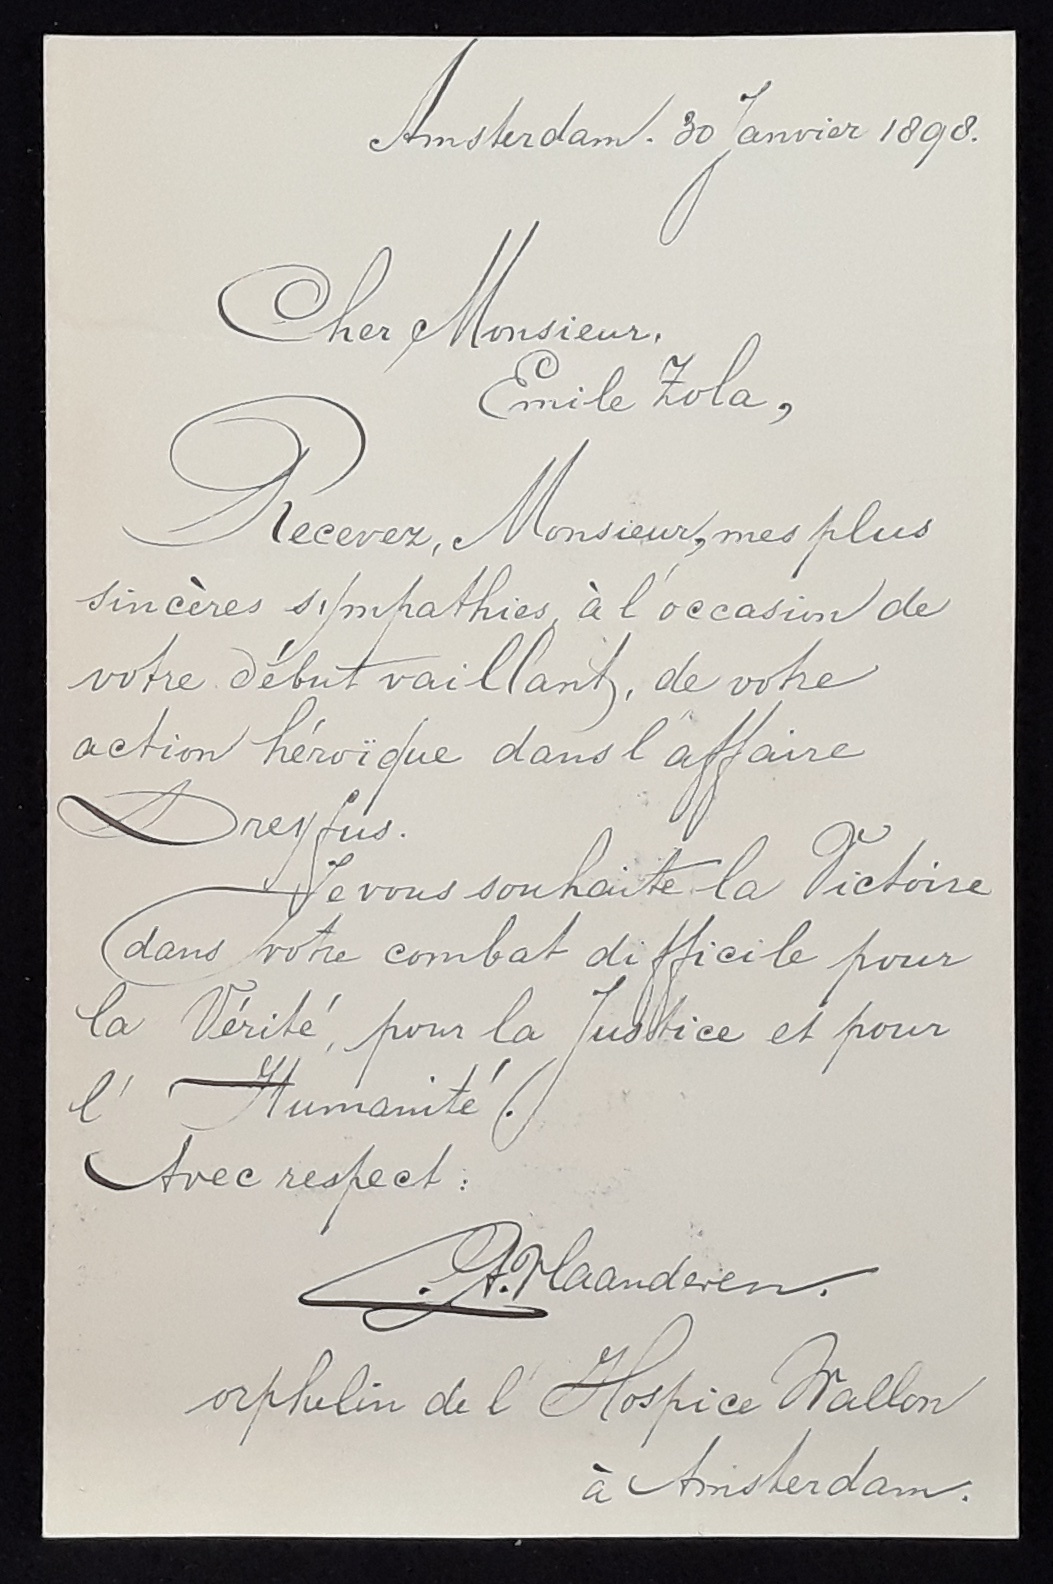 Amsterdam. 30 Janvier 1898.
Cher Monsieur.
Emile Zola,
Recevez, Monsieur, mes plus
sincères sympathies, à l'occasion de
votre début vaillant, de votre
action héroïque dans l'affaire
Dreyfus.
Je vous souhaite la Victoire
dans votre combat difficile pour
la Vérité, pour la Justice et pour
l'Humanité.
Avec respect:
A. Vlaanderen.
orphelin de l'Hospice Wallon
à Amsterdam.